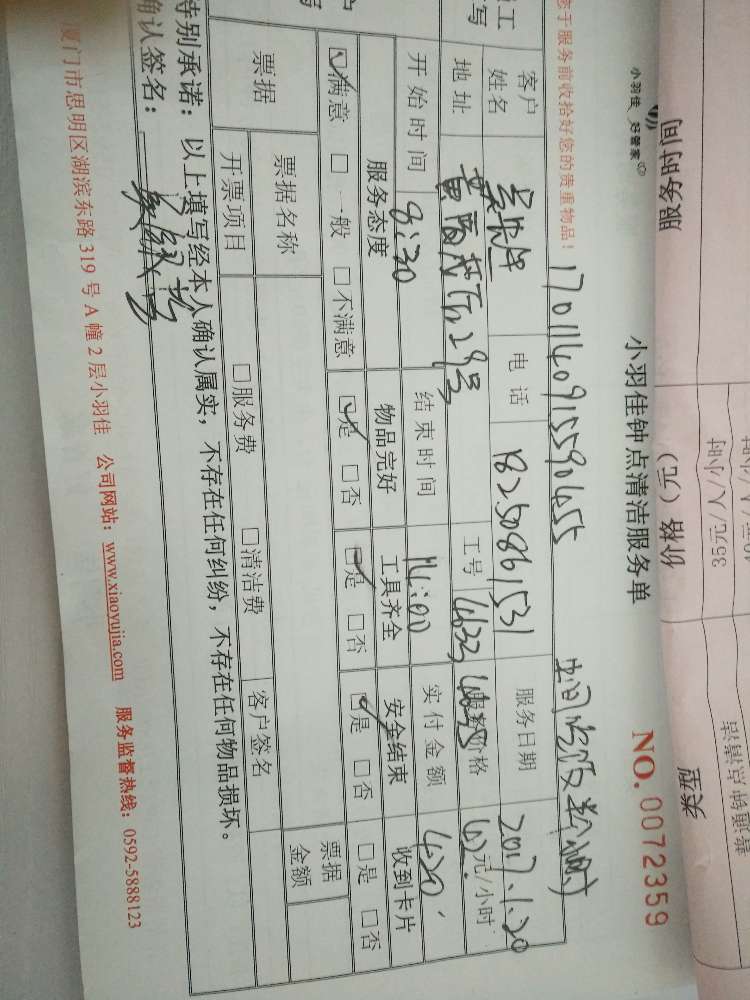 小羽佳 好管家
小羽佳钟点清洁服务单
NO.0072359
您于服务前收拾好您的贵重物品!
17011409155901455
客户姓名
电话 18250861531
服务日期 2017.1.20
地址
29号
工号 4632
服务价格
元/小时
开始时间 8:30
结束时间 14:00
实付金额 420
服务态度 物品完好 工具齐全 安全结束 收到卡片
满意 □一般 □不满意 是 □否 是 □否 是 □否 □是 □否
票据
票据名称
票据金额
开票项目 □服务费 □清洁费 客户签名
特别承诺:以上填写经本人确认属实,不存在任何纠纷,不存在任何物品损坏。
确认签名:
厦门市思明区湖滨东路319号A幢2层小羽佳 公司网站:www.xiaoyujia.com 服务监督热线:0592-5888123
服务时间
价格(元)
类型
35元/人/小时